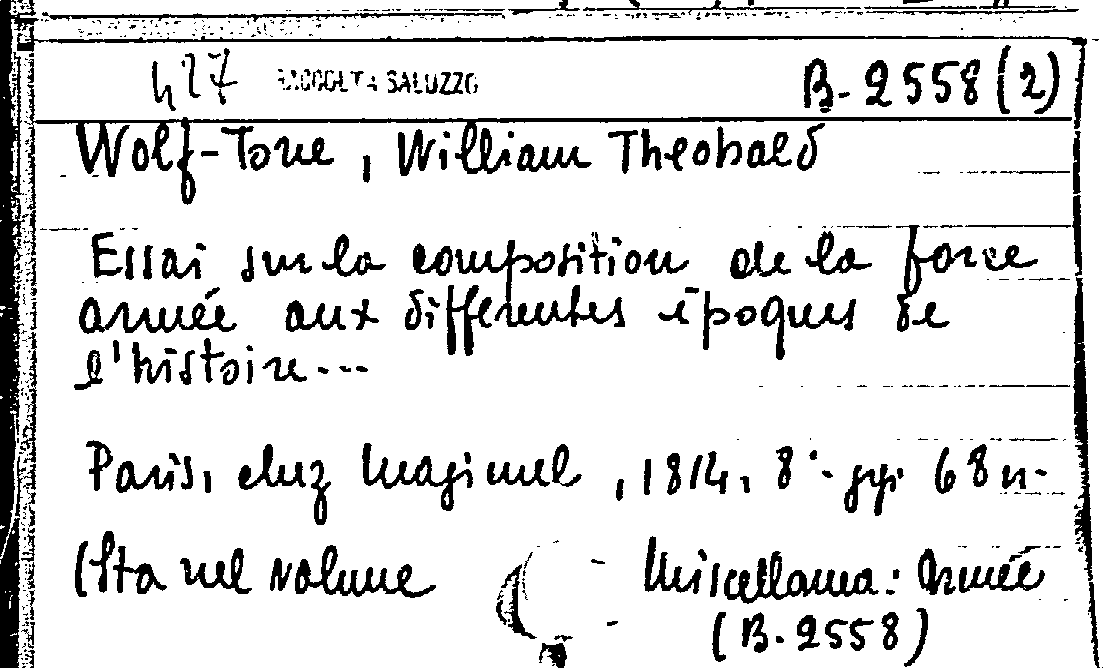 427 RACCOLTA SALUZZO B-2558(2)
Wolf-Tone, William Theobald
Essai sur la composition de la force
armée aux differentes époques de
l'histoire---
Paris, chez Magimel, 1814, 8°- pp. 68 n-
(Sta nel volume - Miscellanea: Armée
- (B-2558)